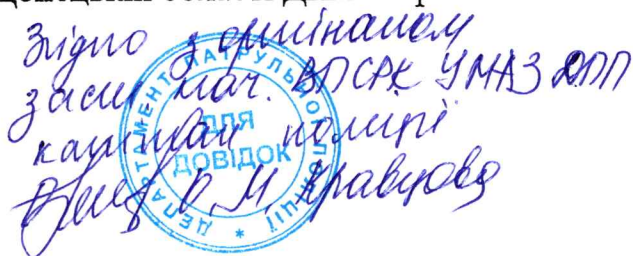 Згідно з оригіналом
заст нач. ВПСРК УМАЗ ДПП
капітан поліції
О.М. Кравцова
ДЕПАРТАМЕНТ ПАТРУЛЬНОЇ ПОЛІЦІЇ *
ДЛЯ
ДОВІДОК